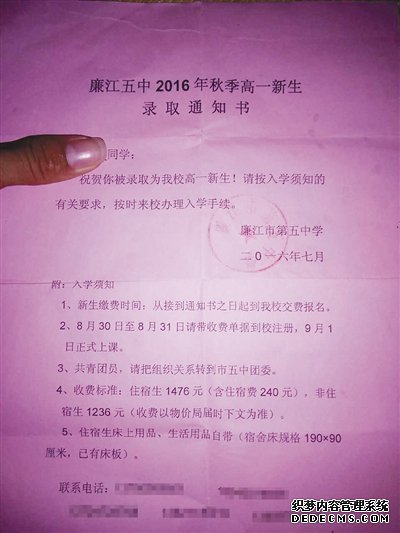 廉江五中2016年秋季高一新生
录取通知书
同学：
祝贺你被录取为我校高一新生！请按入学须知的
有关要求，按时来校办理入学手续。
廉江市第五中学
二〇一六年七月
附：入学须知
1、新生缴费时间：从接到通知书之日起到我校交费报名。
2、8月30日至8月31日请带收费单据到校注册，9月1
日正式上课。
3、共青团员，请把组织关系转到市五中团委。
4、收费标准：住宿生1476元（含住宿费240元），非住
宿生1236元（收费以物价局届时下文为准）。
5、住宿生床上用品、生活用品自带（宿舍床规格190×90
厘米，已有床板）。
联系电话：
织梦内容管理系统
DEDECMS.COM